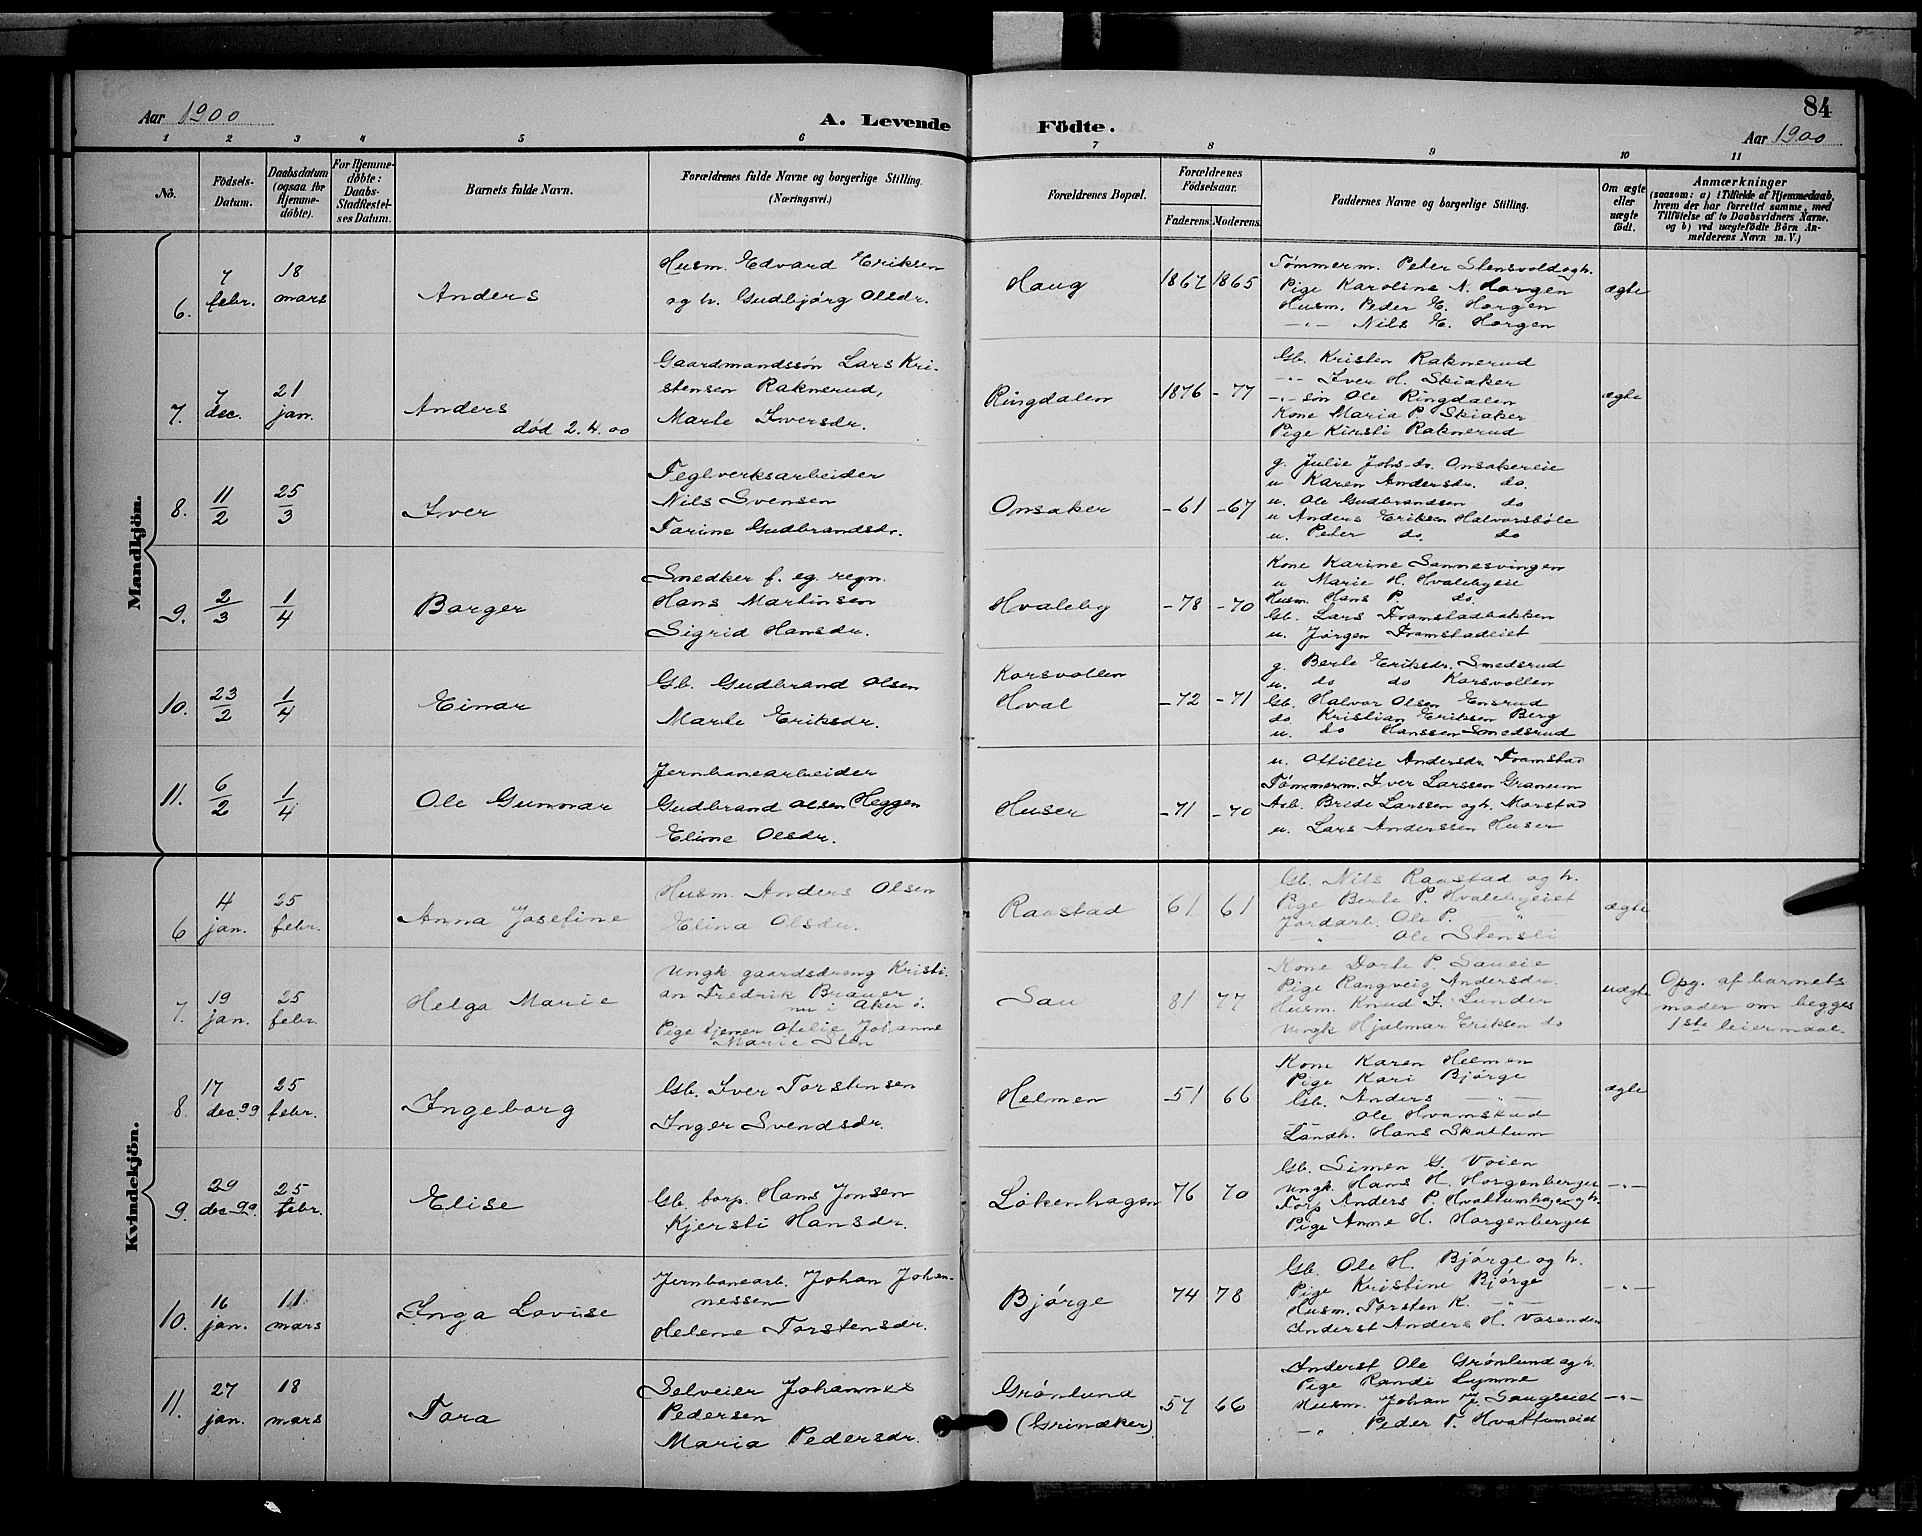 84
Aar 1900
A. Levende Födte.
Aar 1900
1 2 3 4 5 6 7 8 9 10 11
No.
Fødsels-Datum.
Daabsdatum (ogsaa for Hjemme-døbte).
For Hjemme-døbte: Daabs-Stadfæstel-ses Datum.
Barnets fulde Navn.
Forældrenes fulde Navne og borgerlige Stilling.
(Næringsvei.)
Forældrenes Bopæl.
Forældrenes Fødselsaar.
Faderens. Moderens.
Faddernes Navne og borgerlige Stilling.
Om ægte eller uægte født.
Anmærkninger
(saasom: a) i Tilfælde af Hjemmedaab, hvem der har forrettet samme, med Tilføielse af to Daabsvidners Navne. og b) ved uægtefødte Börn An-melderens Navn m. V.)
Mandkjön.
6. 7 febr. 18 mars
Anders
Husm. Edvard Eriksen
og h. Gudbjörg Olsdr.
Haug
1867 1865
Tömmerm. Peter Stensvold og h.
Pige Karoline N. Horgen
Husm. Peder E. Horgen
—"— Nils E. Horgen
ægte
7. 7 dec. 21 jan.
Anders
död 2.4.00
Gaardmandssön Lars Kri-
stensen Raknerud,
Marte Iversdr.
Ringdalen
1876 - 77
Gb. Kristen Raknerud
-"- Iver H. Skiaker
-"- sön Ole Ringdalen
Kone Maria P. Skiaker
Pige Kirsti Raknerud
ægte
8. 11/2 25/3
Iver
Teglverksarbeider
Nils Svensen
Tarine Gudbrandsdr.
Onsaker
-61 -67
g. Julie Johsdo. Onsakereie
u Karen Andersdr. do.
u. Ole Gudbrandsen do
u Anders Eriksen Halvorsböle
u. Peter do. do
9. 2/3 1/4
Borger
Snedker f. eg. regn.
Hans Martinsen
Sigrid Hansdr.
Hvaleby
-78 -70
Kone Karine Sannesvingen
u Marie H. Hvalebyeie
Husm. Hans P. do.
Gb. Lars Framstadbakken
u. Jörgen Framstadeiet
10. 23/2 1/4
Einar
Gb. Gudbrand Olsen
Marte Eriksdr.
Korsvollen
Hval
-72 -71
g. Berte Eriksdr. Smedsrud
u. do do Korsvollen
Gb. Halvor Olsen Ensrud
do. Kristian Eriksen Berg
u. do Hanssen Smedsrud
11. 6/2 1/4
Ole Gunnar
Jernbanearbeider
Gudbrand Olsen Heggen
Eline Olsdr.
Huser
-71 -70
u. Ottillie Andersdr. Framstad
Tömmerm. Iver Larssen Granum
Arb. Brede Larssen og h. Morstad
u. Lars Anderssen Huser
Kvindekjön.
6 4 jan. 25 febr.
Anna Josefine
Husm. Anders Olsen
Elina Olsdr.
Raastad
61 61
Gb. Nils Raastad og h.
Pige Berte P. Hvalebyeiet
Jordarb. Ole P. "
" Ole Stensli
ægte
7. 19 jan. 25 febr.
Helga Marie
Ungk. gaardsdreng Kristi-
an Fredrik Brauer
nu i Aker i.
Pige tjener Ofelie Johanne
Marie Sten
Sau
81 77
Kone Dorte P. Saueie
Pige Rangveig Andersdr.
Husm. Knud I. Lunder
Ungk Hjalmar Eriksen do
uægte
Opg. af barnets
moder om begges
1ste leiermaal.
8. 17 dec 99 25 febr.
Ingeborg
Gb. Iver Torstensen
Inger Svendsdr.
Helmen
-51 66
Kone Karen Helmen
Pige Kari Björge
Gb. Anders —"—
-"- Ole Hvamstad
Landh. Hans Skattum
ægte
9. 29 dec 99. 25 febr.
Elise
Gb. torp. Hans Jonsen
Kjersti Hansdr.
Lökenhagen
76 70
Gb. Simen G. Voien
Ungk. Hans H. Horgenberget
Torp Anders P. Hvattumhagen og h.
Pige Anne H. Horgenberget
—"—
10. 16 jan. 11 mars
Inga Lovise
Jernbanearb. Johan Johan-
nessen
Helene Torstensdr.
Björge
74 78
Gb. Ole H. Björge og h.
Pige Kristine Björge
Husm. Torsten K. —"—
Inderst Anders H. Vasenden
—"—
11. 27 jan. 18 mars
Tora
Selveier Johannes
Pedersen
Maria Pedersdr.
Grönlund
(Grinaker)
57 66
Inderst Ole Grönlund og h.
Pige Randi Lynne
Husm. Johan J. Saugseiet
—"— Peder T. Hvattumeiet
—"—